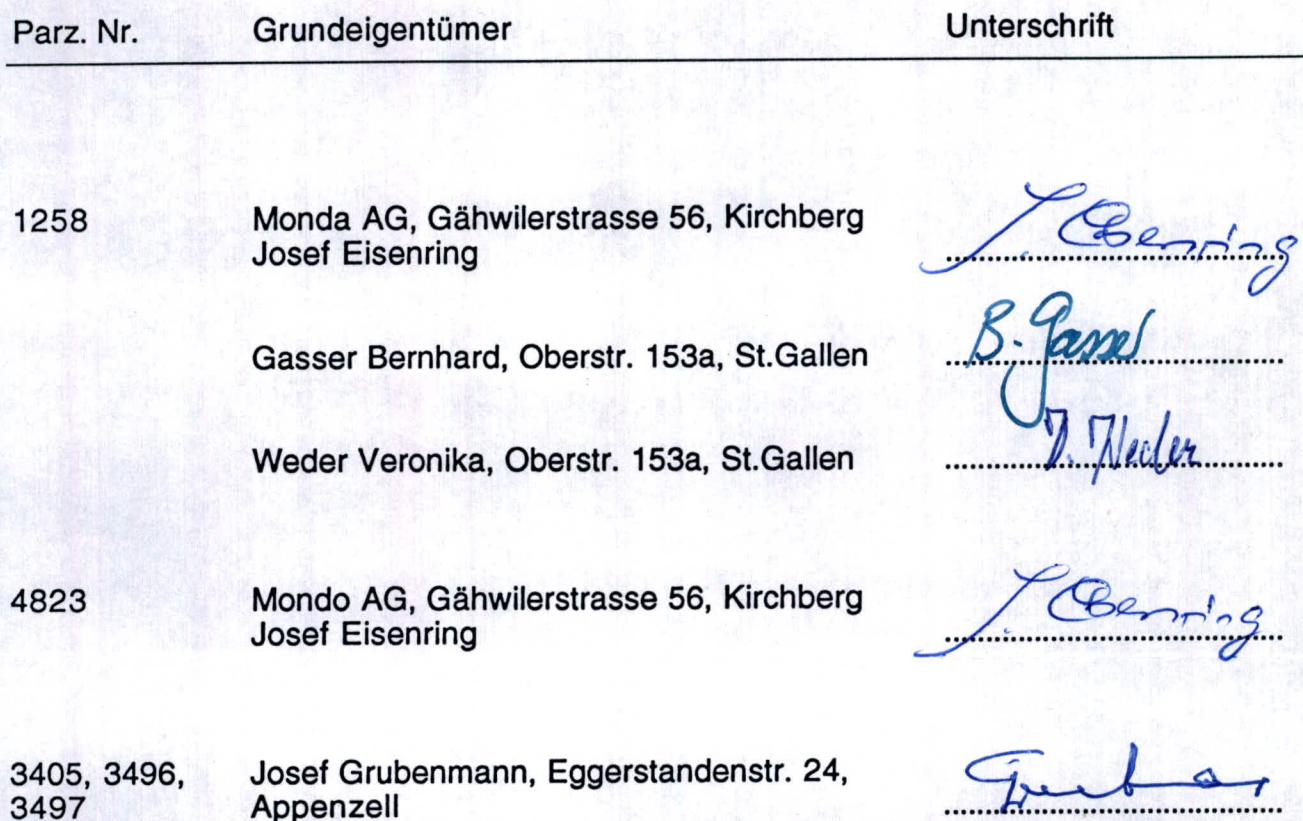 Parz. Nr. Grundeigentümer Unterschrift
1258 Monda AG, Gähwilerstrasse 56, Kirchberg
Josef Eisenring J. Eisenring
Gasser Bernhard, Oberstr. 153a, St.Gallen B. Gasser
Weder Veronika, Oberstr. 153a, St.Gallen V. Weder
4823 Mondo AG, Gähwilerstrasse 56, Kirchberg
Josef Eisenring J. Eisenring
3405, 3496, Josef Grubenmann, Eggerstandenstr. 24,
3497 Appenzell